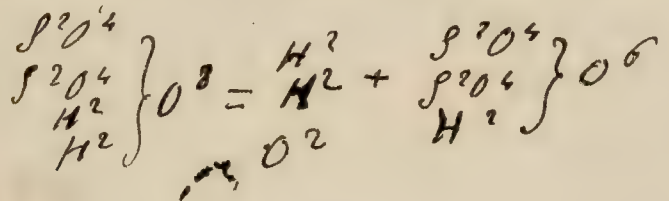 S²O⁴
S²O⁴
H²
H² } O⁸ = H²
H²
O² + S²O⁴
S²O⁴
H² } O⁶